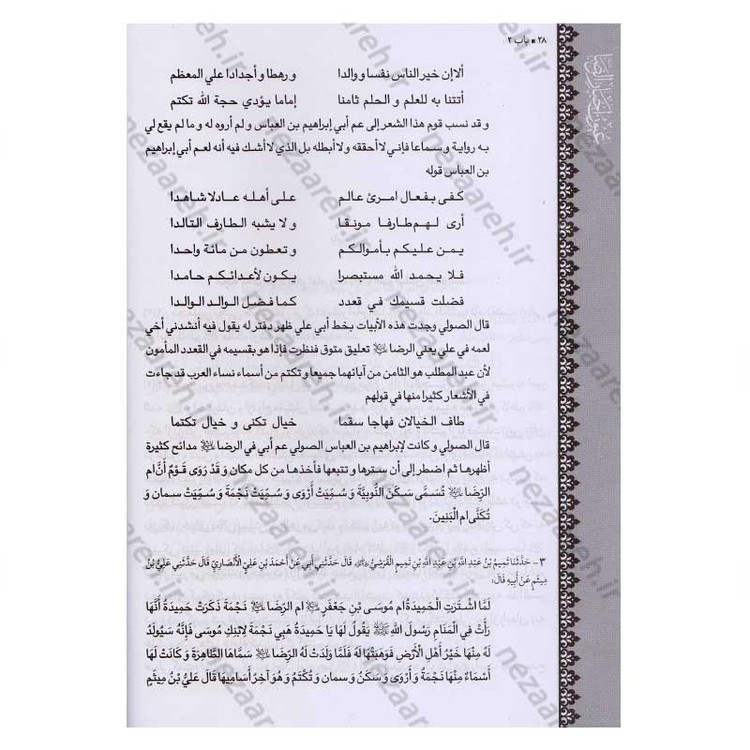 ٢٨ ▪ باب ٢
عيون أخبار الرضا
ألا إن خير الناس نفسا و والدا و رهطا و أجدادا علي المعظم
أتتنا به للعلم و الحلم ثامنا إماما يؤدي حجة الله تكتم
و قد نسب قوم هذا الشعر إلى عم أبي إبراهيم بن العباس و لم أروه له و ما لم يقع لي
به رواية و سماعا فإني لا أحققه و لا أبطله بل الذي لا أشك فيه أنه لعم أبي إبراهيم
بن العباس قوله
كفى بفعال امرئ عالم على أهله عادلا شاهدا
أرى لهم طارفا مونقا و لا يشبه الطارف التالدا
يمن عليكم بأموالكم و تعطون من مائة واحدا
فلا يحمد الله مستبصرا يكون لأعدائكم حامدا
فضلت قسيمك في قعدد كما فضل الوالد الوالدا
قال الصولي وجدت هذه الأبيات بخط أبي علي ظهر دفتر له يقول فيه أنشدني أخي
لعمه في علي يعني الرضا ﷷ تعليق متوق فنظرت فإذا هو بقسيمه في القعدد المأمون
لأن عبد المطلب هو الثامن من آبائهما جميعا و تكتم من أسماء نساء العرب قد جاءت
في الأشعار كثيرا منها في قولهم
طاف الخيالان فهاجا سقما خيال تكنى و خيال تكتما
قال الصولي و كانت لإبراهيم بن العباس الصولي عم أبي في الرضا مدائح كثيرة
أظهرها ثم اضطر إلى أن سترها و تتبعها فأخذها من كل مكان وَ قَدْ رَوَى قَوْمٌ أَنَّ ام
الرِّضَا تُسَمَّى سَكَنَ النُّوبِيَّةَ وَ سُمِّيَتْ أَرْوَى وَ سُمِّيَتْ نَجْمَةَ وَ سُمِّيَتْ سمان وَ
تُكَنَّى ام الْبَنِينَ.
٣ - حَدَّثَنَا تَمِيمُ بْنُ عَبْدِ اللَّهِ بْنِ تَمِيمٍ الْقُرَشِيُّ، قَالَ حَدَّثَنِي أَبِي عَنْ أَحْمَدَ بْنِ عَلِيٍّ الْأَنْصَارِيِّ قَالَ حَدَّثَنِي عَلِيُّ بْنُ
مِيثَمٍ عَنْ أَبِيهِ قَالَ:
لَمَّا اشْتَرَتِ الْحَمِيدَةُ ام مُوسَى بْنِ جَعْفَرٍ ام الرِّضَا نَجْمَةَ ذَكَرَتْ حَمِيدَةُ أَنَّهَا
رَأَتْ فِي الْمَنَامِ رَسُولَ اللَّهِ ﷺ يَقُولُ لَهَا يَا حَمِيدَةُ هَبِي نَجْمَةَ لِابْنِكِ مُوسَى فَإِنَّهُ سَيُولَدُ
لَهُ مِنْهَا خَيْرُ أَهْلِ الْأَرْضِ فَوَهَبَتْهَا لَهُ فَلَمَّا وَلَدَتْ لَهُ الرِّضَا سَمَّاهَا الطَّاهِرَةَ وَ كَانَتْ لَهَا
أَسْمَاءٌ مِنْهَا نَجْمَةُ وَ أَرْوَى وَ سَكَنُ وَ سمان وَ تُكْتَمُ وَ هُوَ آخِرُ أَسَامِيهَا قَالَ عَلِيُّ بْنُ مِيثَمٍ
nezaareh.ir